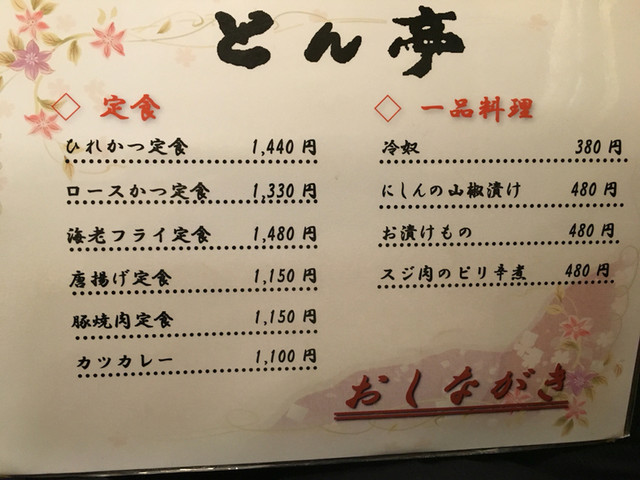 とん亭
◇ 定食
ひれかつ定食 1,440 円
ロースかつ定食 1,330 円
海老フライ定食 1,480 円
唐揚げ定食 1,150 円
豚焼肉定食 1,150 円
カツカレー 1,100 円
◇ 一品料理
冷奴 380 円
にしんの山椒漬け 480 円
お漬けもの 480 円
スジ肉のピリ辛煮 480 円
おしながき